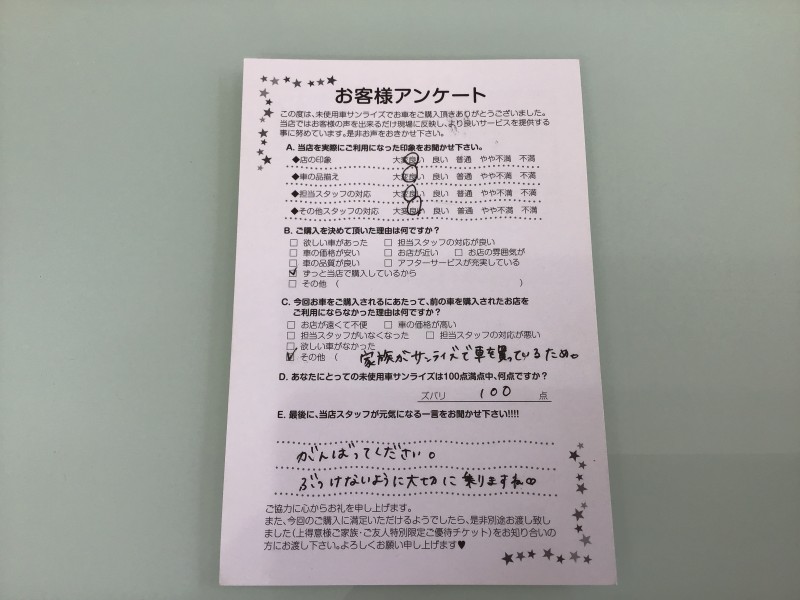 お客様アンケート
この度は、未使用車サンライズでお車をご購入頂きありがとうございました。
当店ではお客様の声を出来るだけ現場に反映し、より良いサービスを提供する
事に努めています。是非お声をおきかせ下さい。
A. 当店を実際にご利用になった印象をお聞かせ下さい。
◆店の印象 大変良い 良い 普通 やや不満 不満
◆車の品揃え 大変良い 良い 普通 やや不満 不満
◆担当スタッフの対応 大変良い 良い 普通 やや不満 不満
◆その他スタッフの対応 大変良い 良い 普通 やや不満 不満
B. ご購入を決めて頂いた理由は何ですか?
□ 欲しい車があった □ 担当スタッフの対応が良い
□ 車の価格が安い □ お店が近い □ お店の雰囲気が
□ 車の品質が良い □ アフターサービスが充実している
☑ ずっと当店で購入しているから
□ その他 ( )
C. 今回お車をご購入されるにあたって、前の車を購入されたお店を
ご利用にならなかった理由は何ですか?
□ お店が遠くて不便 □ 車の価格が高い
□ 担当スタッフがいなくなった □ 担当スタッフの対応が悪い
□ 欲しい車がなかった
☑ その他 ( 家族がサンライズで車を買っているため。
D. あなたにとっての未使用車サンライズは100点満点中、何点ですか?
ズバリ 100 点
E. 最後に、当店スタッフが元気になる一言をお聞かせ下さい!!!!
がんばってください。
ぶつけないように大切に乗りますね
ご協力に心からお礼を申し上げます。
また、今回のご購入に満足いただけるようでしたら、是非別途お渡し致し
ました(上得意様ご家族・ご友人特別限定ご優待チケット)をお知り合いの
方にお渡し下さい。よろしくお願い申し上げます♥